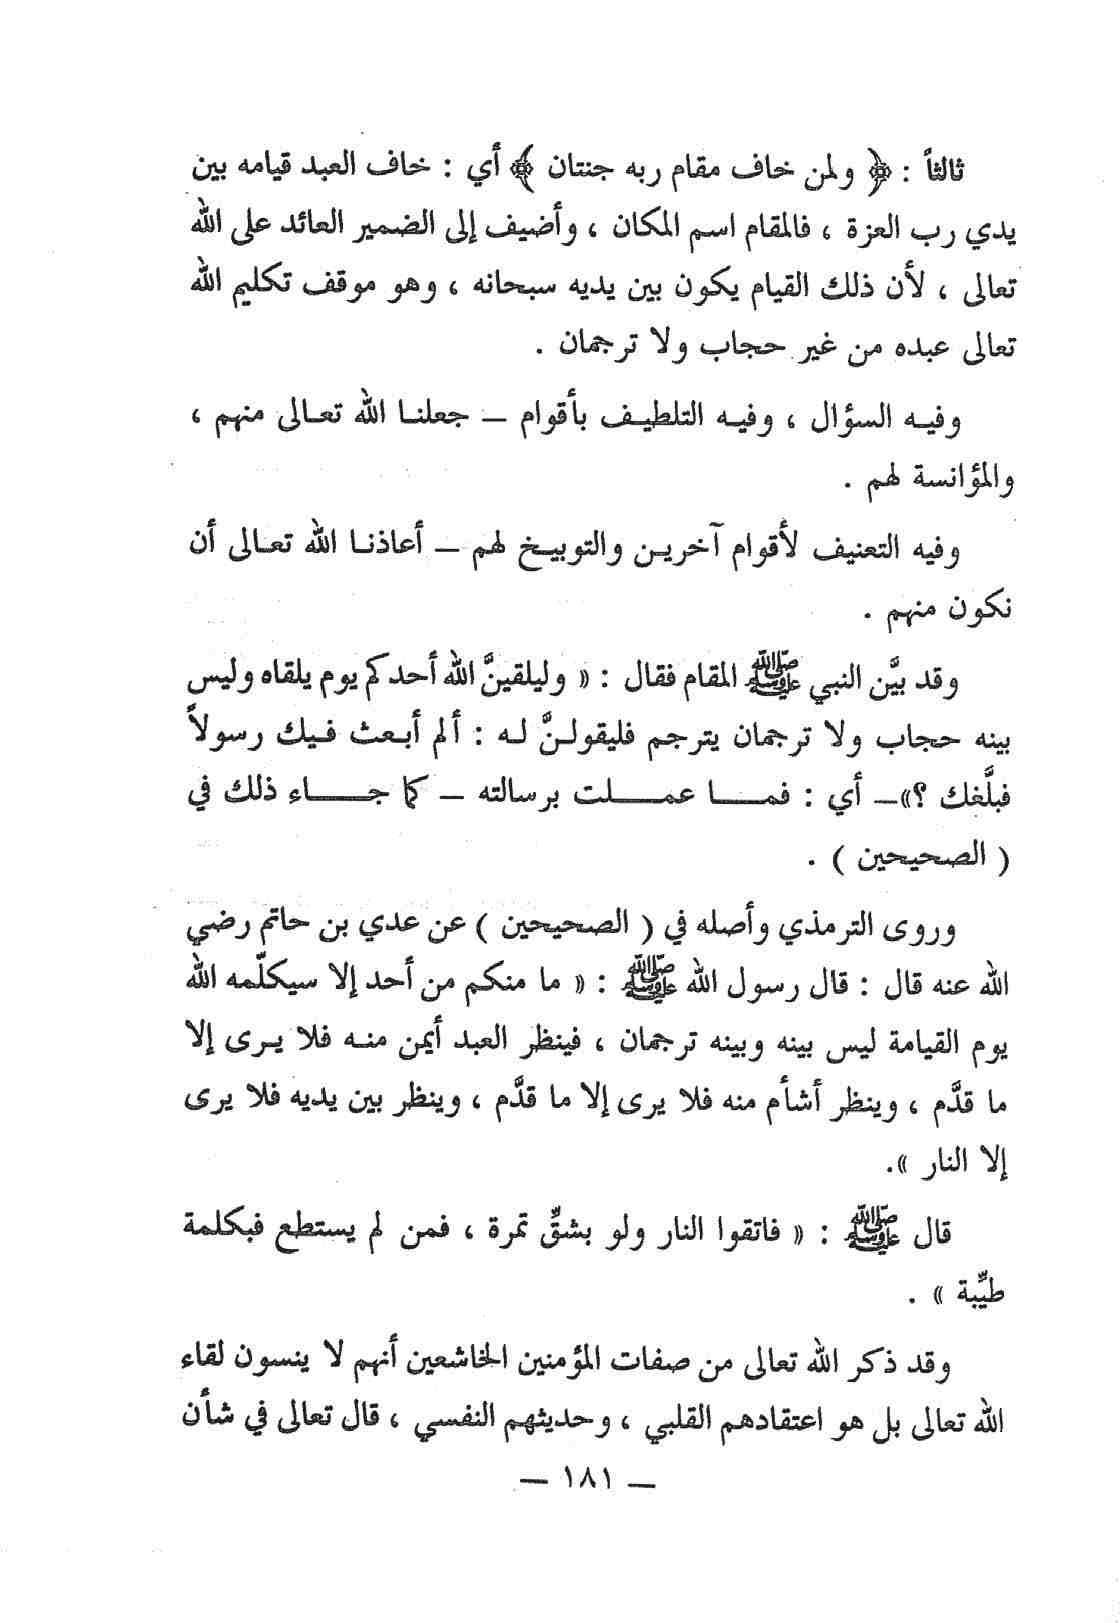 ثالثاً : ﴿ ولمن خاف مقام ربه جنتان ﴾ أي : خاف العبد قيامه بين
يدي رب العزة ، فالمقام اسم المكان ، وأضيف إلى الضمير العائد على الله
تعالى ، لأن ذلك القيام يكون بين يديه سبحانه ، وهو موقف تكليم الله
تعالى عبده من غير حجاب ولا ترجمان .
وفيه السؤال ، وفيه التلطيف بأقوام – جعلنا الله تعالى منهم ،
والمؤانسة لهم .
وفيه التعنيف لأقوام آخرين والتوبيخ لهم – أعاذنا الله تعالى أن
نكون منهم .
وقد بيَّن النبي ﷺ المقام فقال : « وليلقينَّ الله أحدكم يوم يلقاه وليس
بينه حجاب ولا ترجمان يترجم فليقولنَّ له : ألم أبعث فيك رسولاً
فبلَّغك ؟» – أي : فما عملت برسالته – كما جاء ذلك في
( الصحيحين ) .
وروى الترمذي وأصله في ( الصحيحين ) عن عدي بن حاتم رضي
الله عنه قال : قال رسول الله ﷺ : « ما منكم من أحد إلا سيكلّمه الله
يوم القيامة ليس بينه وبينه ترجمان ، فينظر العبد أيمن منه فلا يرى إلا
ما قدَّم ، وينظر أشأم منه فلا يرى إلا ما قدَّم ، وينظر بين يديه فلا يرى
إلا النار ».
قال ﷺ : « فاتقوا النار ولو بشقِّ تمرة ، فمن لم يستطع فبكلمة
طيِّبة » .
وقد ذكر الله تعالى من صفات المؤمنين الخاشعين أنهم لا ينسون لقاء
الله تعالى بل هو اعتقادهم القلبي ، وحديثهم النفسي ، قال تعالى في شأن
– ١٨١ –